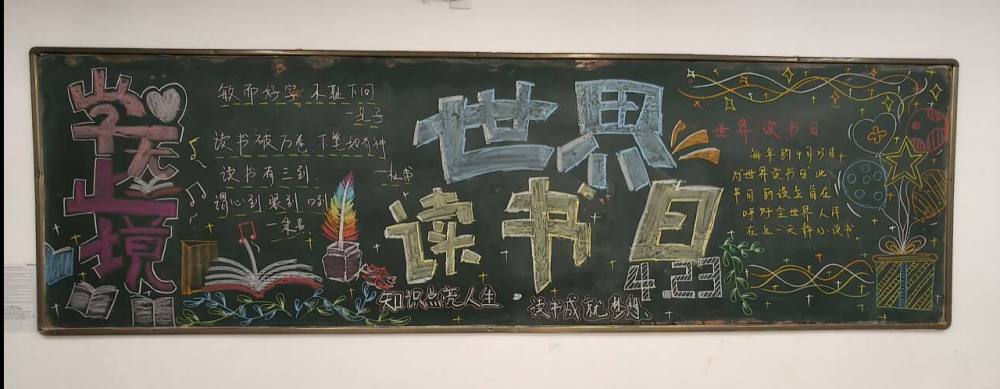 学无止境
敏而好学,不耻下问
—孔子
读书破万卷,下笔如有神
—杜甫
读书有三到,
谓心到 眼到 口到
—朱熹
世界
读书日
4.23
知识点亮人生 · 读书成就梦想
世界读书日
每年的4月23日,
为世界读书日 此
节日的设立旨在
呼吁全世界人民
在这一天静心读书.